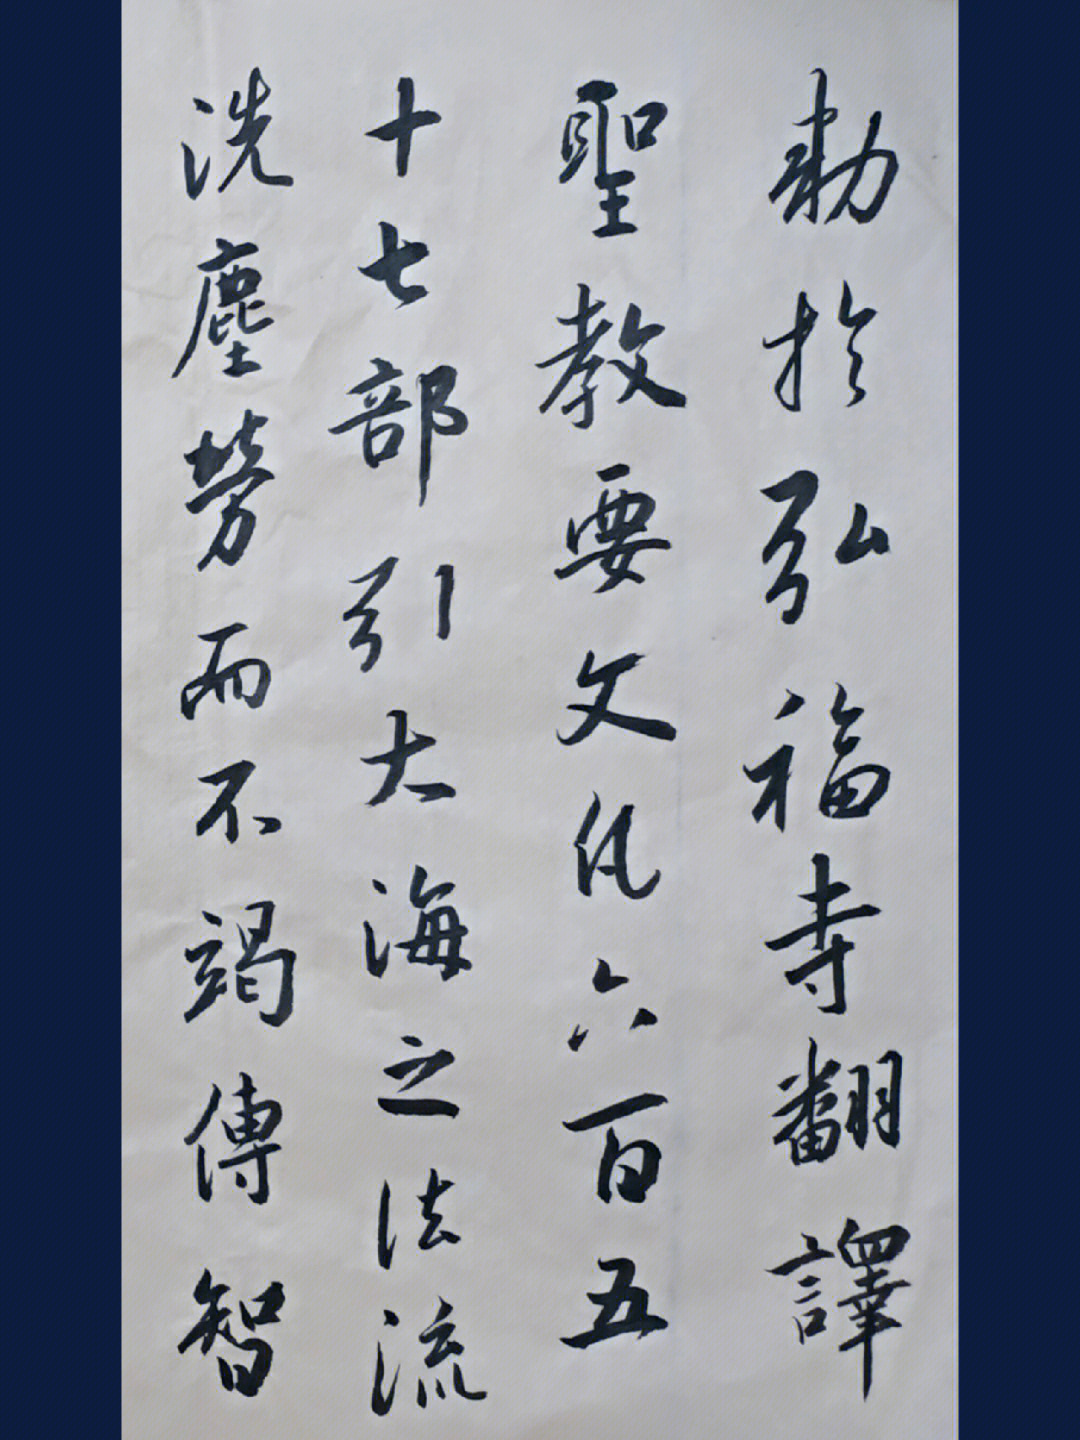 勅於弘福寺翻譯
聖教要文凡六百五
十七部引大海之法流
洗塵勞而不竭傳智